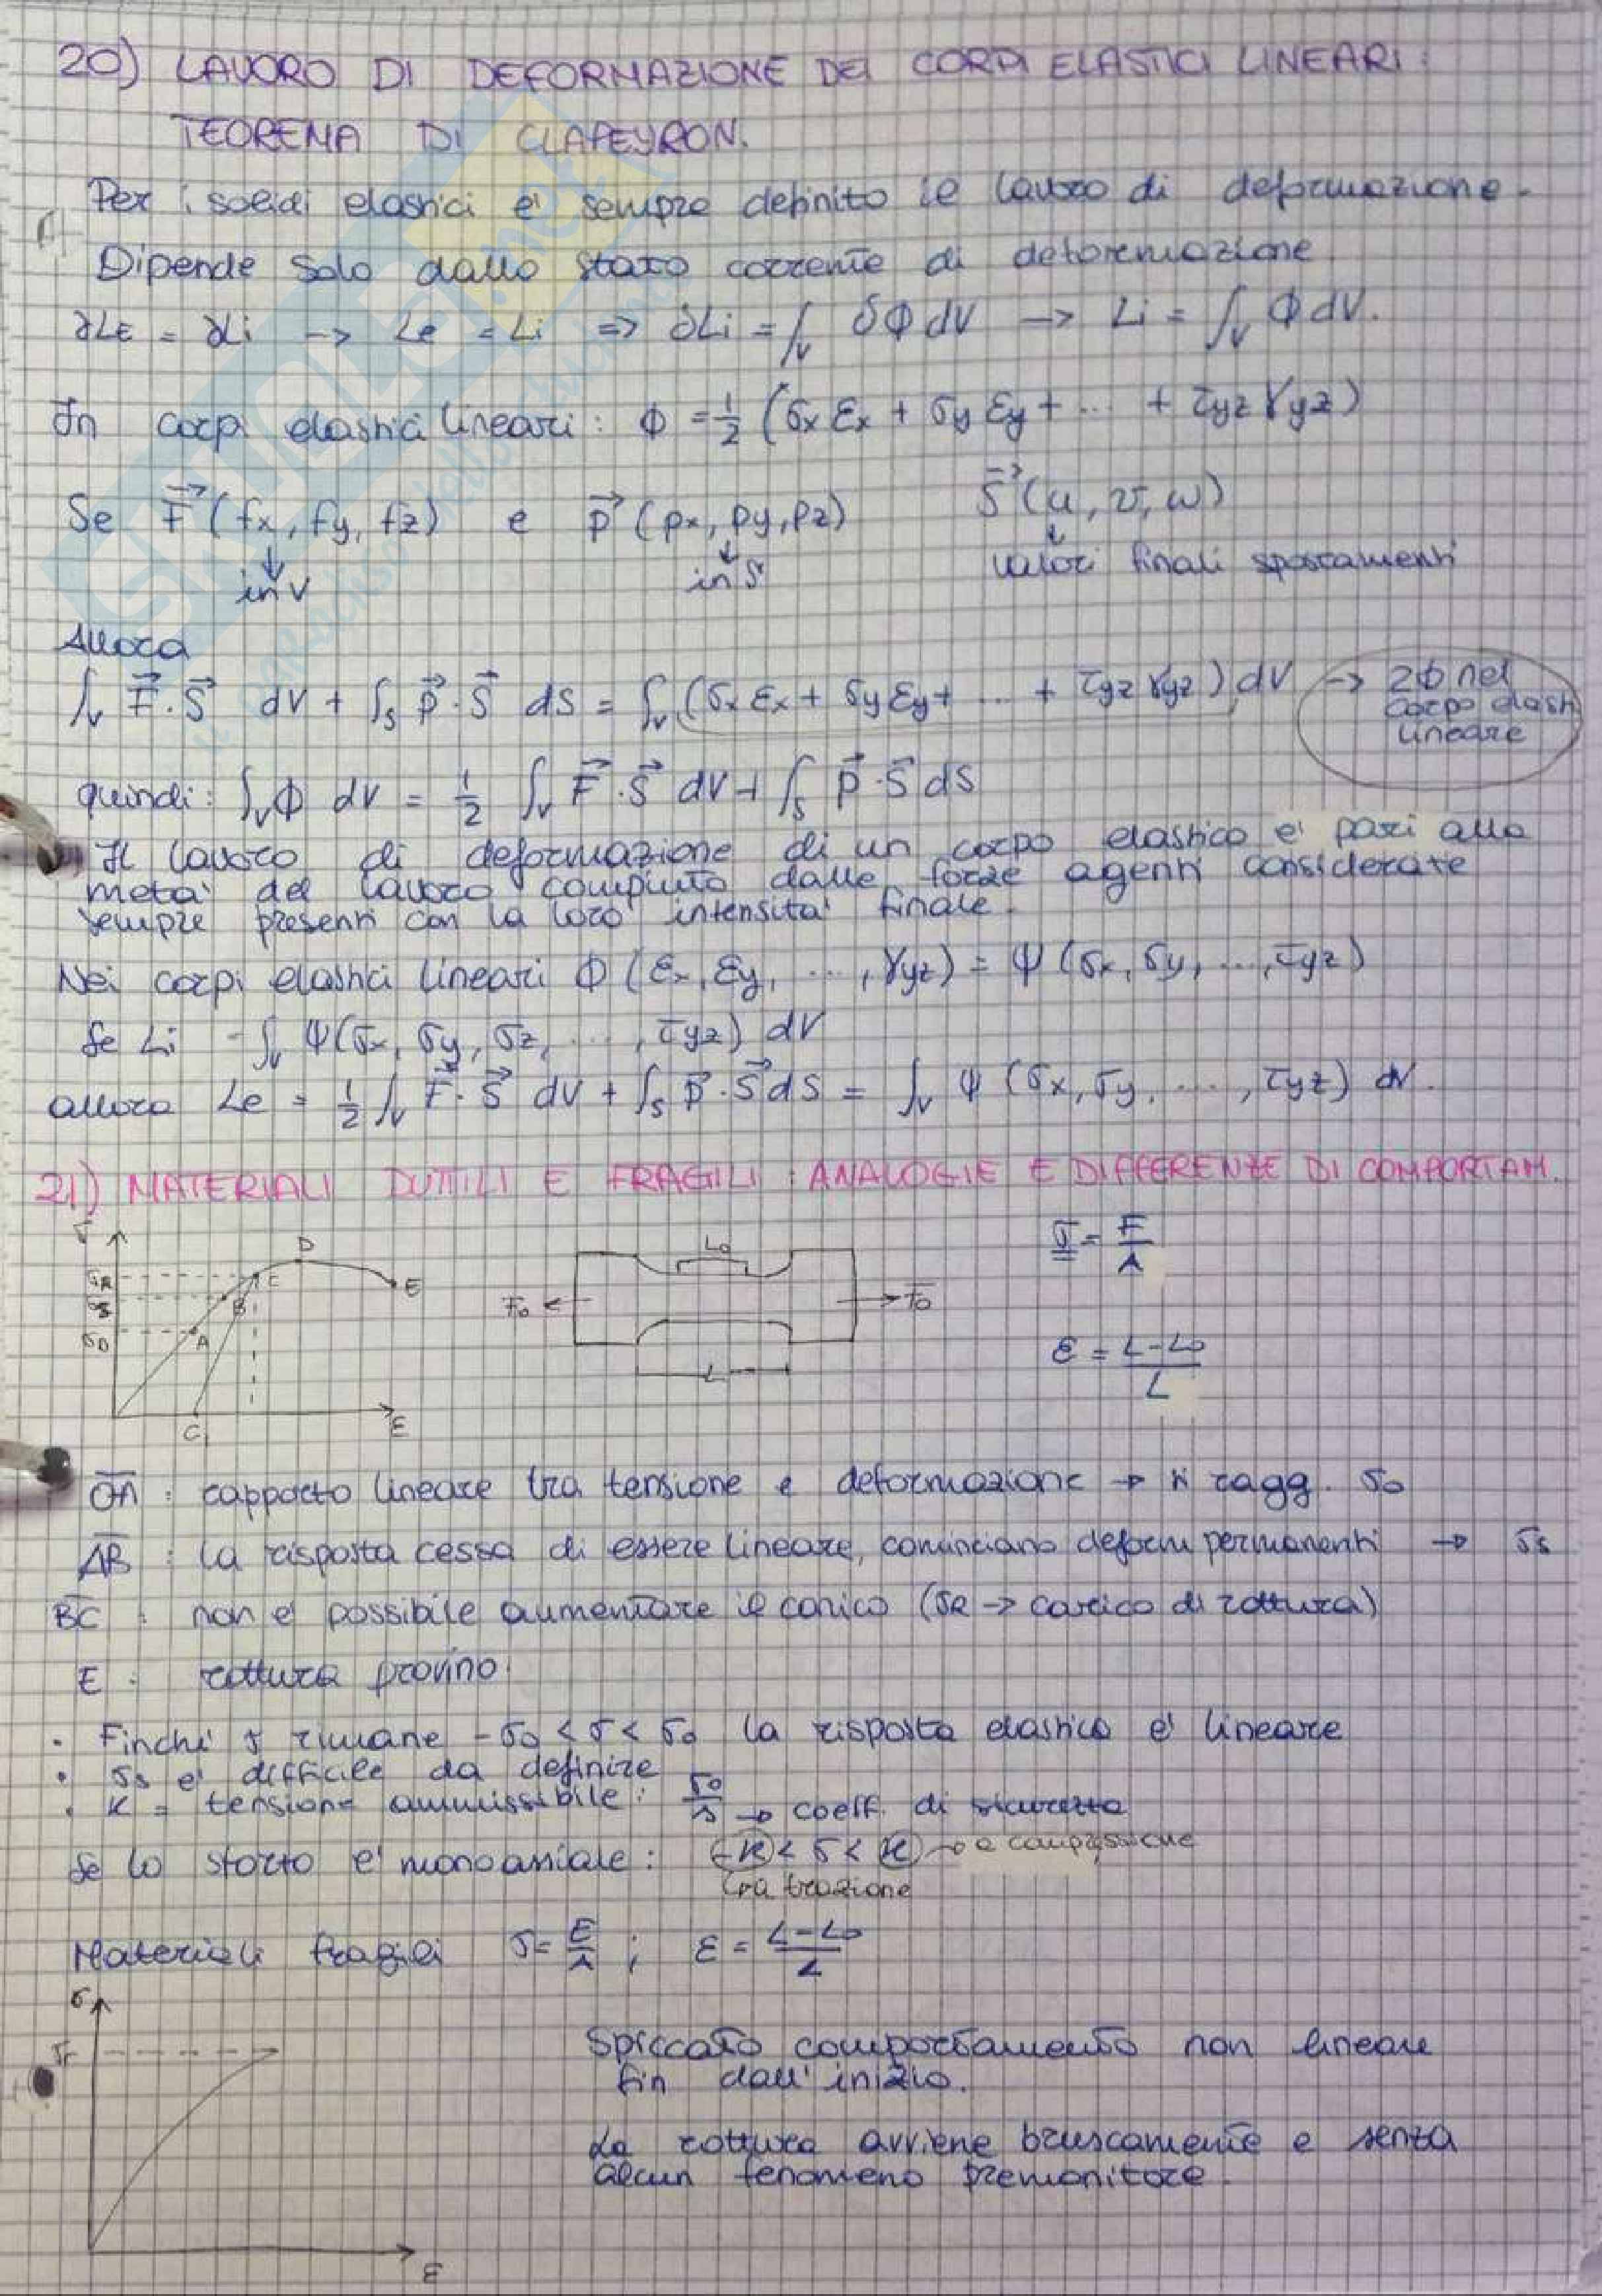 20) LAVORO DI DEFORMAZIONE DEI CORPI ELASTICI LINEARI:
TEOREMA DI CLAPEYRON.
Per i solidi elastici e' sempre definito il lavoro di deformazione.
Dipende solo dallo stato corrente di deformazione
∂LE = ∂Li → Le = Li => ∂Li = ∫v δΦ dV → Li = ∫v Φ dV.
In corpi elastici lineari: Φ = 1/2 (σx εx + σy εy + ... + τyz γyz)
Se F⃗ (fx, fy, fz) e p⃗ (px, py, pz) S⃗ (u, v, w)
↓ in V ↓ in S ↓ valori finali spostamenti
Allora
∫v F⃗ · S⃗ dV + ∫s p⃗ · S⃗ dS = ∫v (σx εx + σy εy + ... + τyz γyz) dV → 2Φ nel
corpo elast
lineare
quindi: ∫v Φ dV = 1/2 ∫v F⃗ · S⃗ dV + ∫s p⃗ · S⃗ dS
Il lavoro di deformazione di un corpo elastico e' pari alla
meta' del lavoro compiuto dalle forze agenti considerate
sempre presenti con la loro intensita' finale.
Nei corpi elastici lineari Φ (εx, εy, ..., γyz) = ψ (σx, σy, ..., τyz)
Se Li = ∫v ψ(σx, σy, σz, ..., τyz) dV
allora Le = 1/2 ∫v F⃗ · S⃗ dV + ∫s p⃗ · S⃗ dS = ∫v ψ (σx, σy, ..., τyz) dV.
21) MATERIALI DUTTILI E FRAGILI: ANALOGIE E DIFFERENZE DI COMPORTAM.
σ D L0 σ = F/A
σR C E
σs B F0 F0
σ0 A ε = L-L0/L
L
C ε
OA : rapporto lineare tra tensione e deformazione → si ragg. σ0
AB : la risposta cessa di essere lineare, cominciano deform permanenti → σs
BC : non e' possibile aumentare il carico (σR → carico di rottura)
E : rottura provino
· Finche' σ rimane -σ0 < σ < σ0 la risposta elastica e' lineare
· σs e' difficile da definire
· K = tensione ammissibile: σ0/s → coeff. di sicurezza
Se lo sforzo e' monoassiale: -K < σ < K → a compressione
tra trazione
Materiali fragili σ = F/A ; ε = L-L0/L
σ
σr
Spiccato comportamento non lineare
fin dall'inizio.
La rottura avviene bruscamente e senza
alcun fenomeno premonitore.
ε
SKUOLA.net
il paradiso dello studente